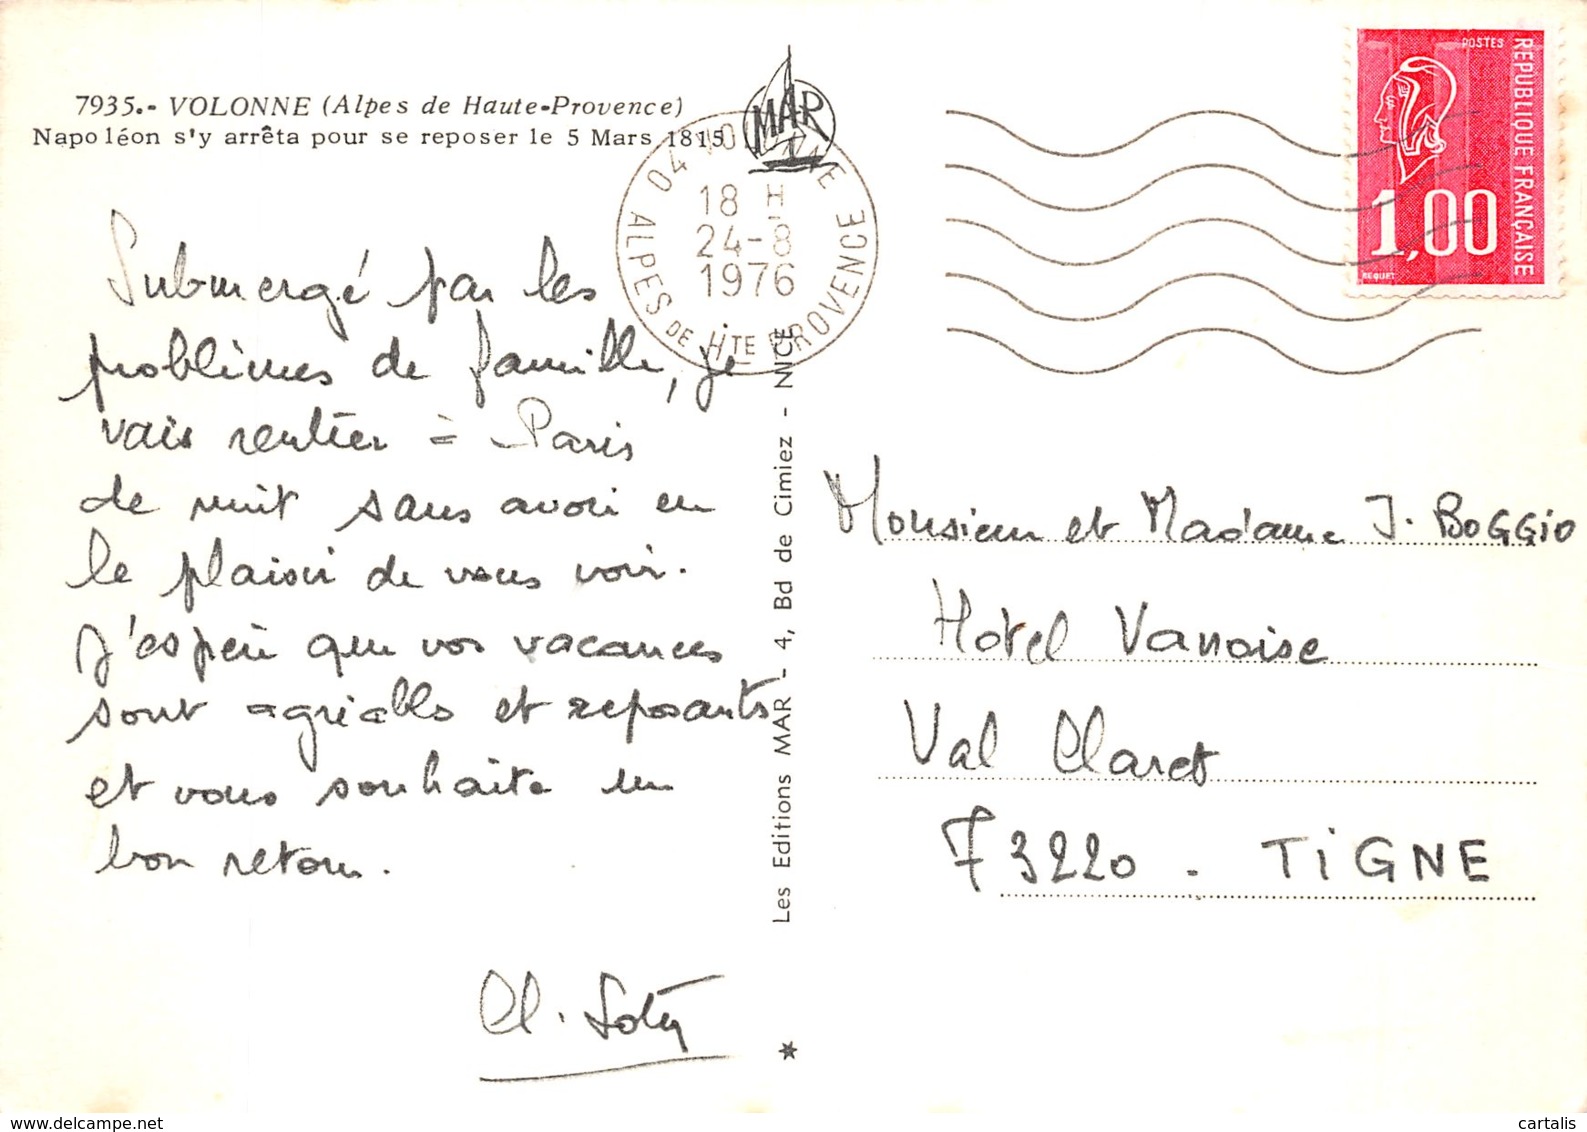 7935.- VOLONNE (Alpes de Haute-Provence)
Napoléon s'y arrêta pour se reposer le 5 Mars 1815
MAR
04 VOLONNE
18 H
24-8
1976
ALPES DE HTE PROVENCE
POSTES
REPUBLIQUE FRANÇAISE
1,00
BEQUET
Submergé par les
problèmes de famille, je
vais rentrer à Paris
de nuit sans avoir eu
le plaisir de vous voir.
J'espère que vos vacances
sont agréables et reposants
et vous souhaite un
bon retour.
Les Editions MAR - 4, Bd de Cimiez - NICE
Monsieur et Madame J. BOGGIO
Hôtel Vanoise
Val Claret
73220 - TIGNE
cartalis